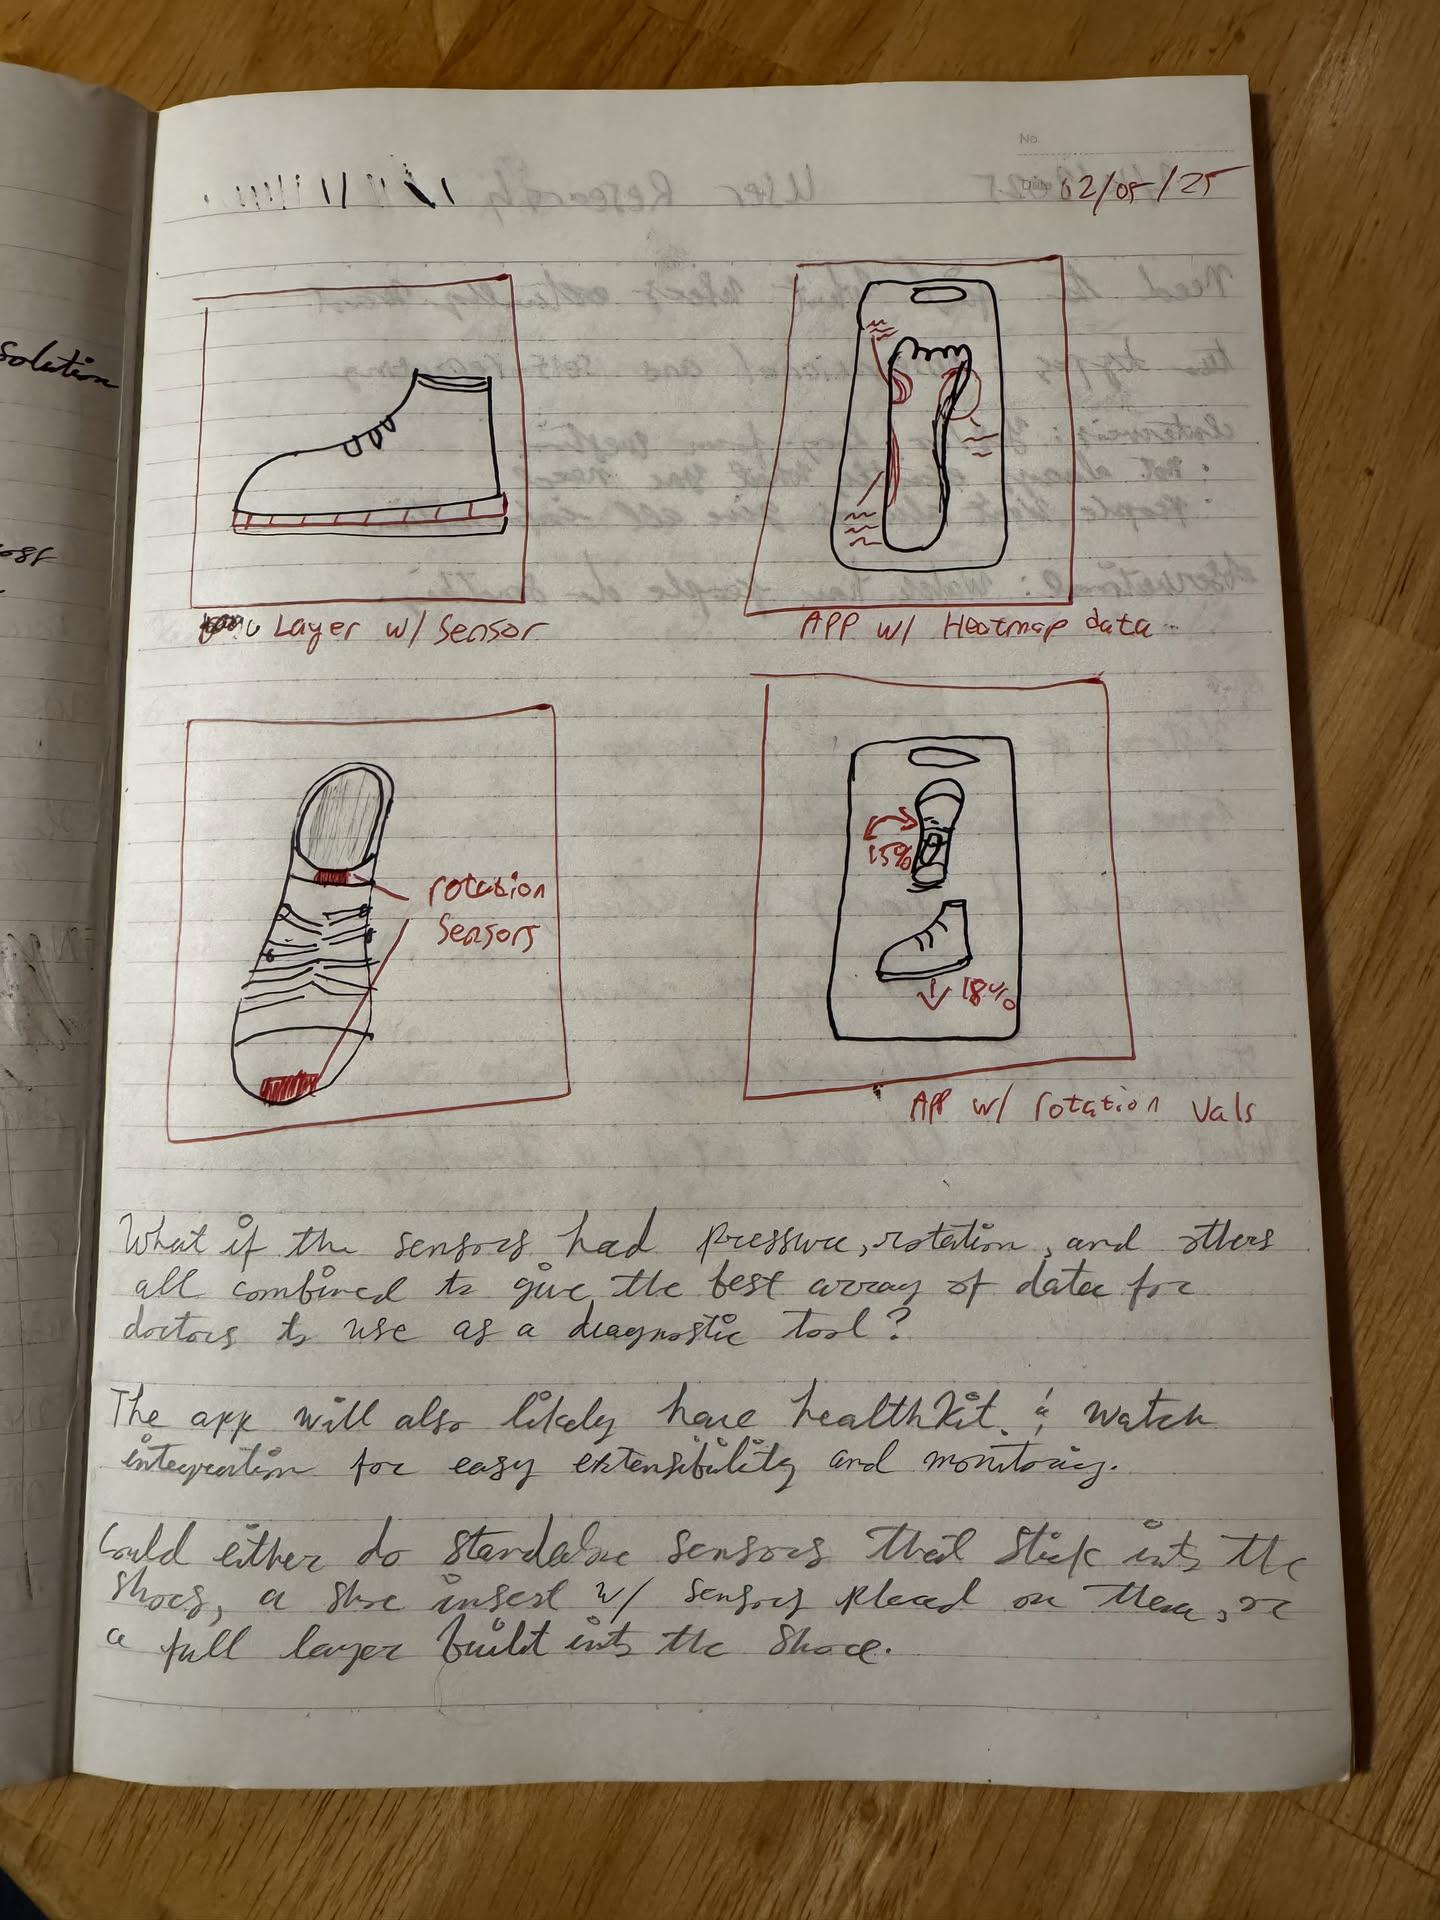 solution
02/05/25
Layer w/ Sensor
APP w/ Heatmap data
rotation
Sensors
15%
18%
APP w/ rotation vals
What if the sensors had pressure, rotation, and others
all combined to give the best array of data for
doctors to use as a diagnostic tool?
The app will also likely have healthkit & watch
integration for easy extensibility and monitoring.
Could either do standalone sensors that stick into the
shoes, a shoe insert w/ sensors placed on them, or
a full layer built into the shoe.